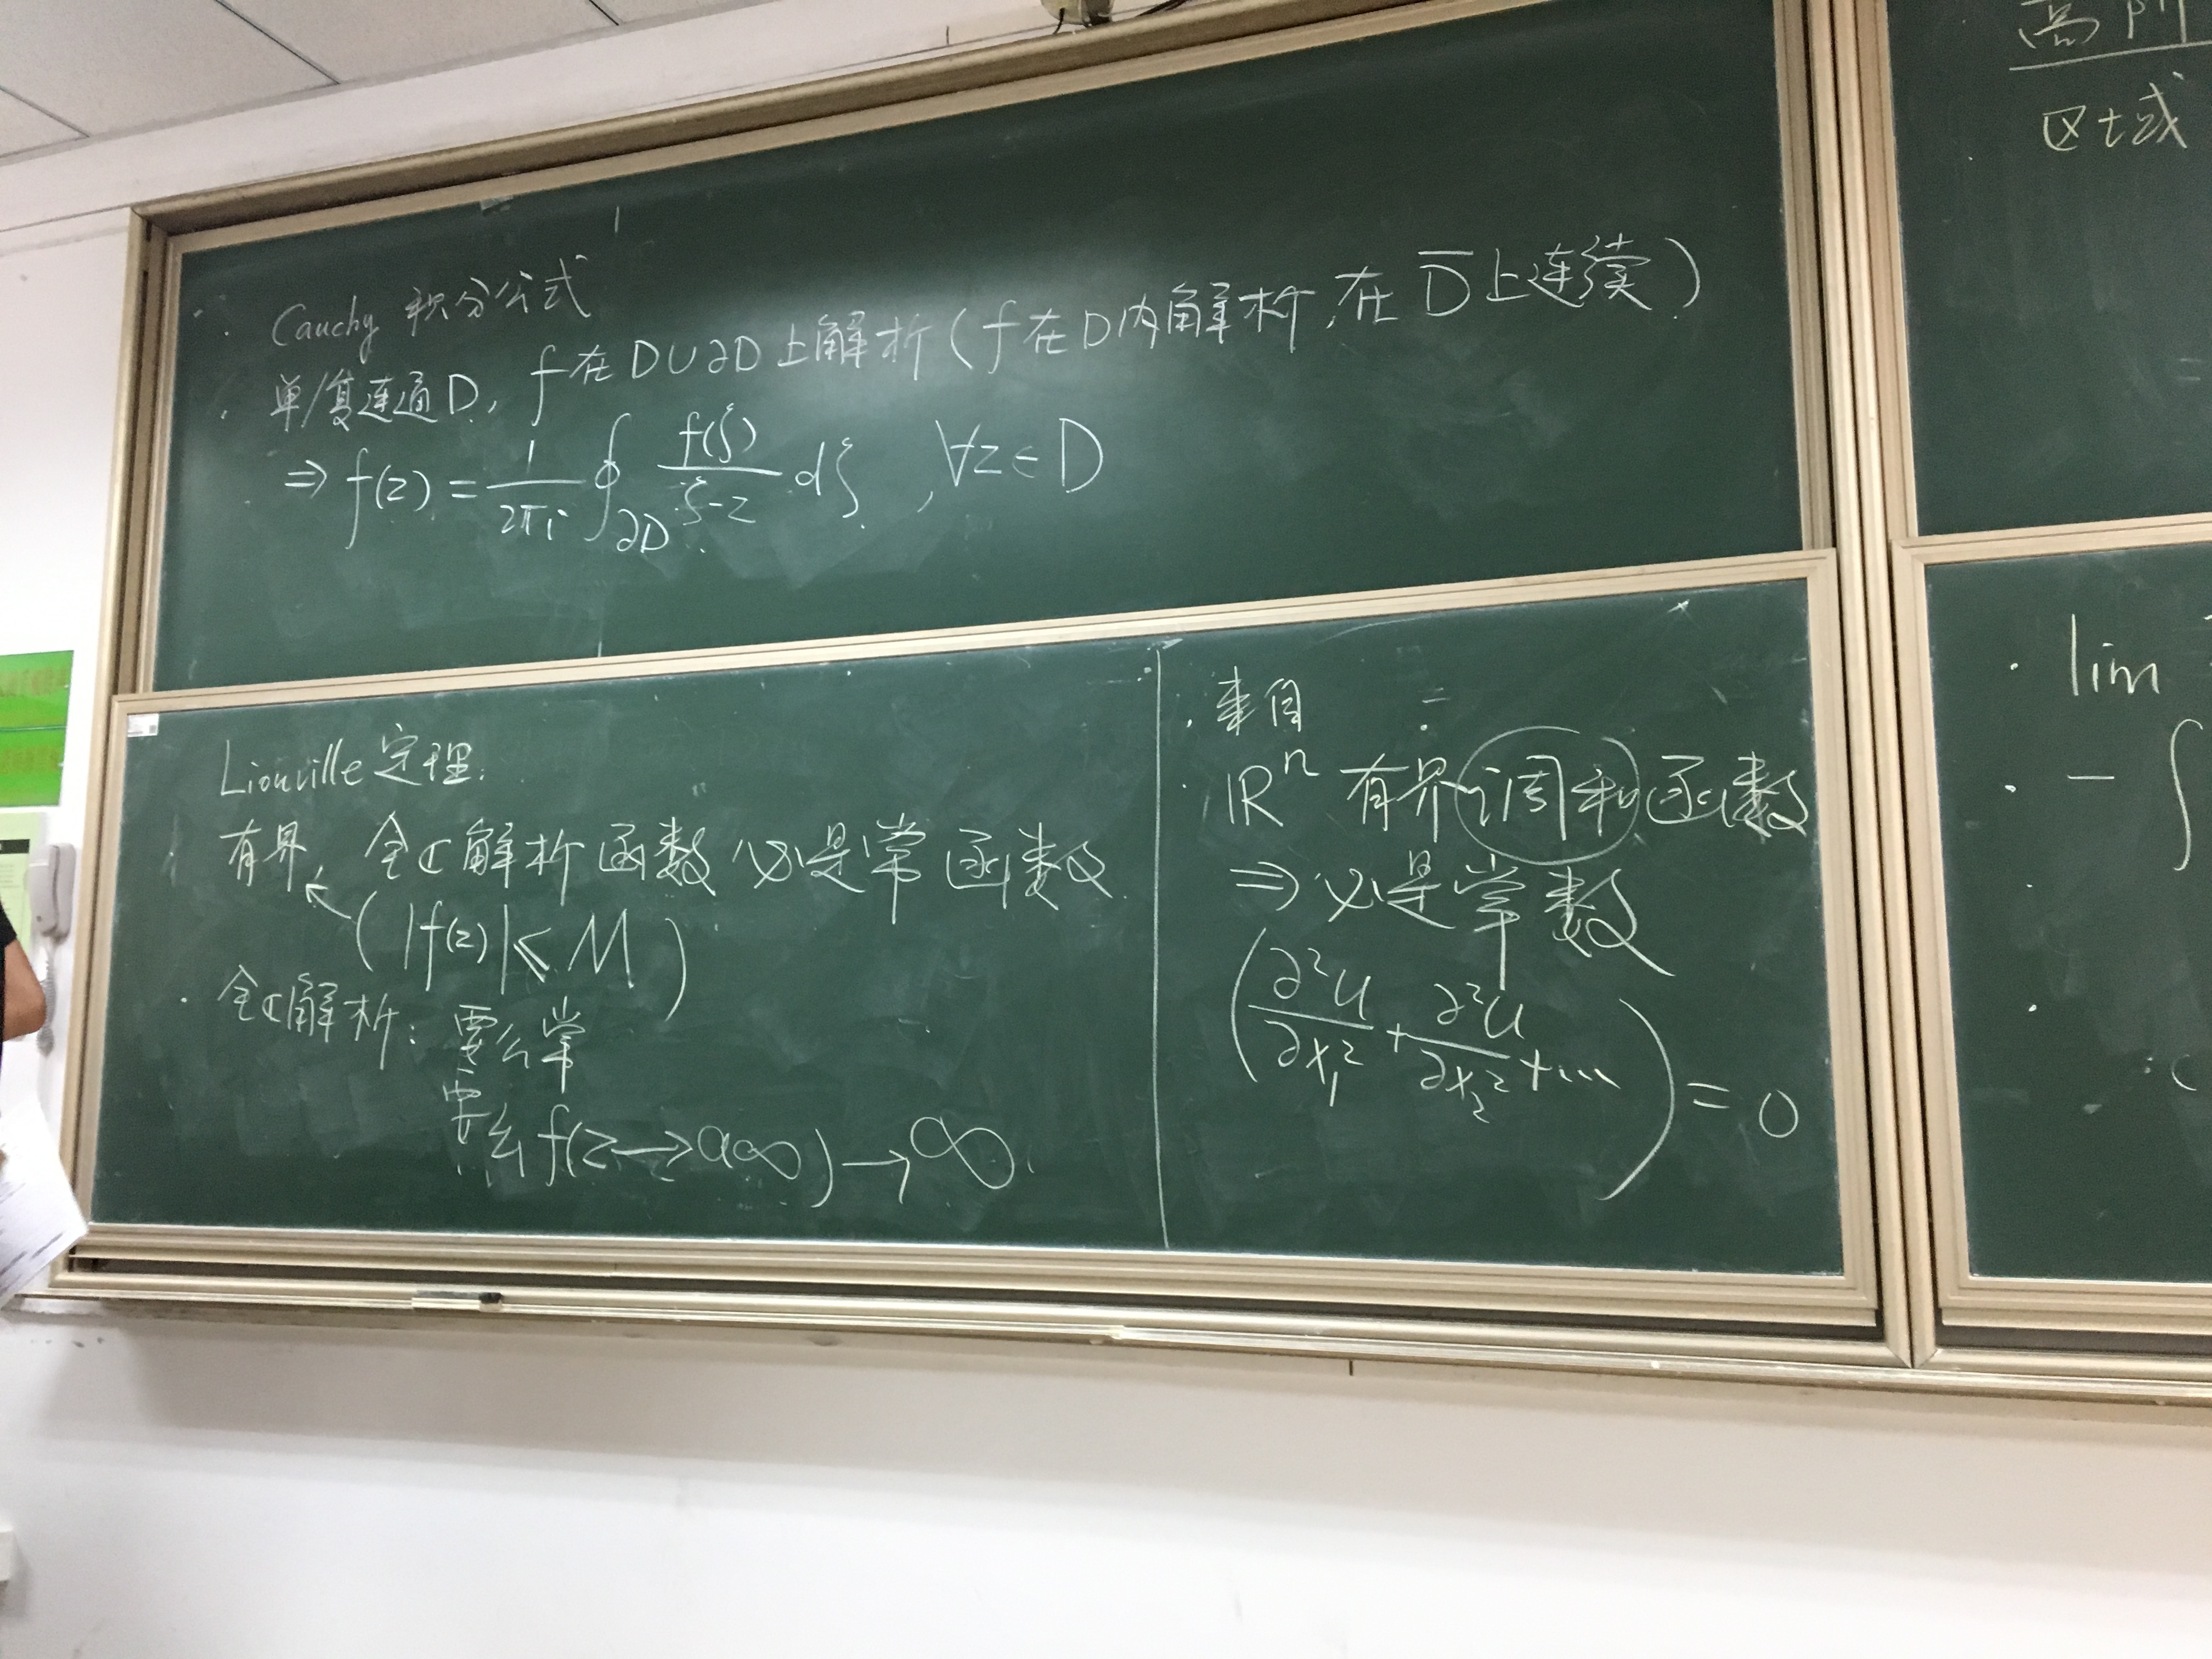 Cauchy 积分公式
单/复连通D, f在D∪∂D上解析(f在D内解析,在D̅上连续)
⇒ f(z) = 1/2πi ∮∂D f(ζ)/ζ-z dζ , ∀z∈D
Liouville 定理.
有界 全ℂ解析函数必是常函数
(|f(z)| ≤ M)
全ℂ解析: 要么常
要么 f(z→a∞)→∞.
来自
ℝⁿ 有界调和函数
⇒ 必是常数
(∂²u/∂x₁² + ∂²u/∂x₂² + ...) = 0
高阶
区域
lim
- ∫